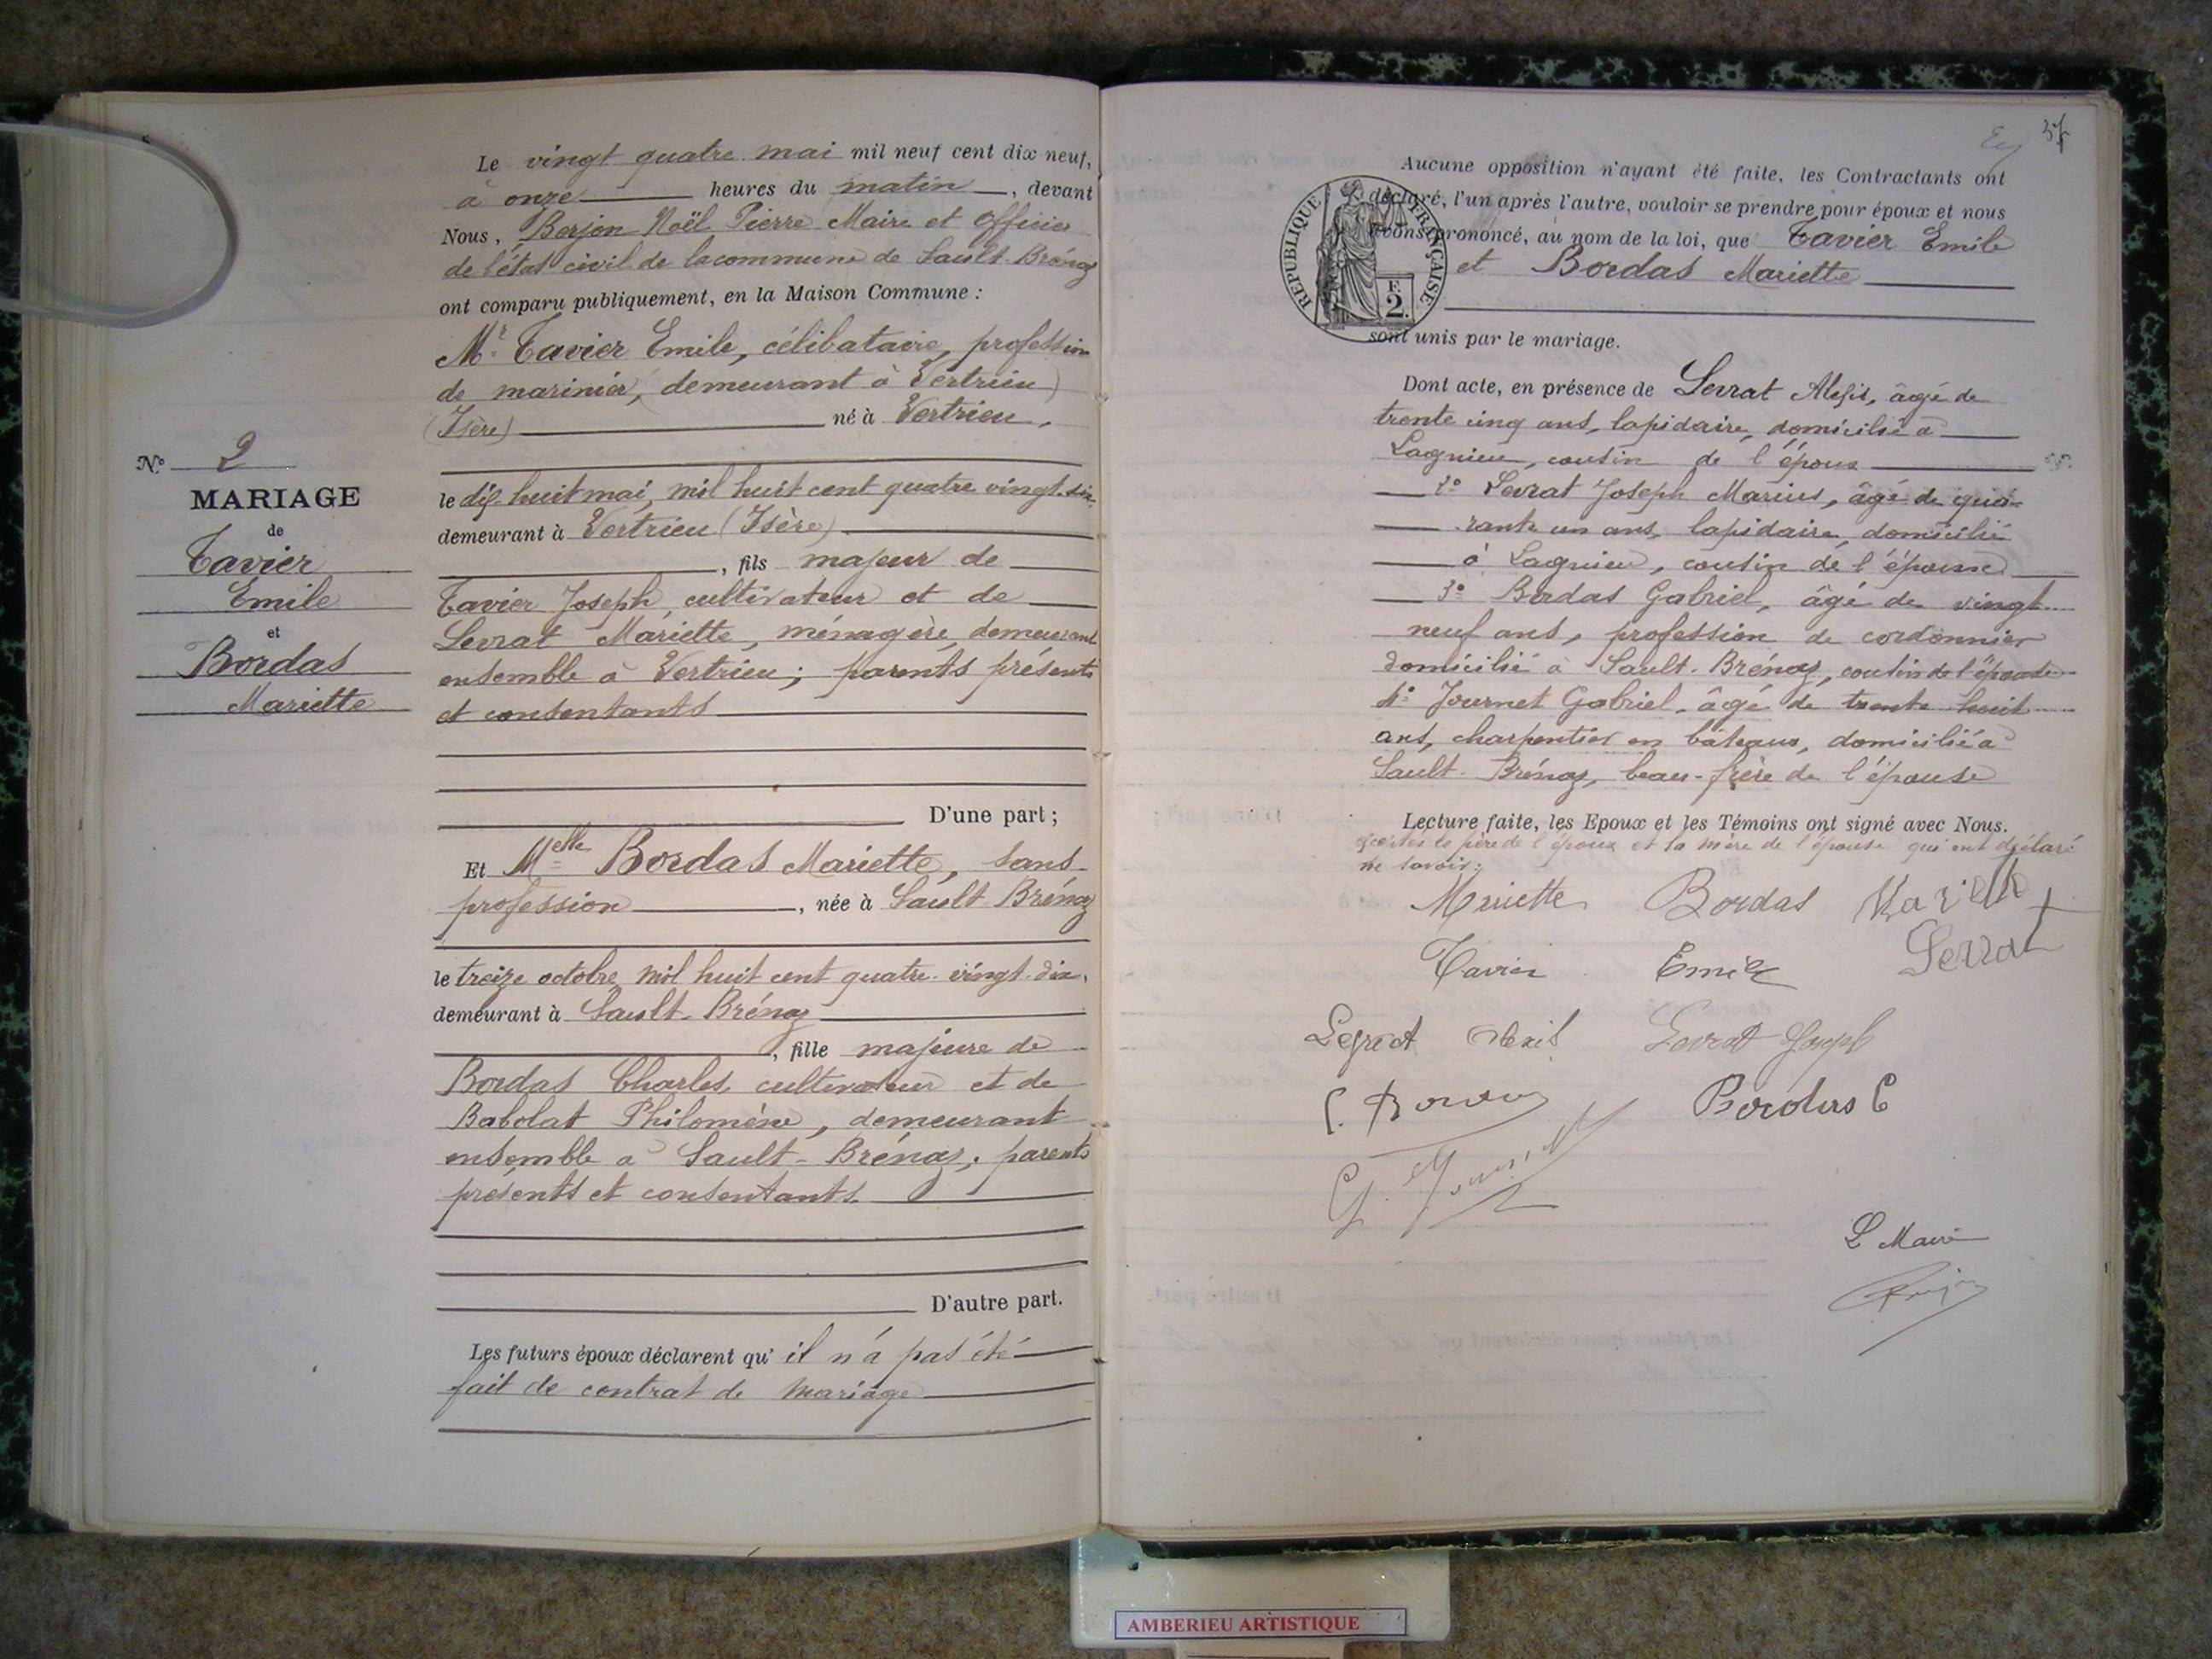 Le vingt quatre mai mil neuf cent dix-neuf,
à onze heures du matin, devant
Nous, Berjon Noël Pierre Maire et officier
de l'état civil de la commune de Sault-Brénaz
ont comparu publiquement, en la Maison Commune :
Mr Tavier Emile, célibataire, profession
de marinier, demeurant à Vertrieu
(Isère) né à Vertrieu,
le dix-huit mai, mil huit cent quatre vingt-six
demeurant à Vertrieu (Isère)
, fils majeur de
Tavier Joseph, cultivateur et de
Levrat Mariette, ménagère, demeurant
ensemble à Vertrieu; parents présents
et consentants
D'une part ;
Et Melle Bordas Mariette, sans
profession, née à Sault-Brénaz
le treize octobre, mil huit cent quatre-vingt-dix,
demeurant à Sault-Brénaz
, fille majeure de
Bordas Charles, cultivateur et de
Babolat Philomène, demeurant
ensemble à Sault-Brénaz; parents
présents et consentants.
D'autre part.
Les futurs époux déclarent qu'il n'a pas été
fait de contrat de mariage
No 2
MARIAGE
de
Tavier
Emile
et
Bordas
Mariette
Aucune opposition n'ayant été faite, les Contractants ont
déclaré, l'un après l'autre, vouloir se prendre pour époux et nous
avons prononcé, au nom de la loi, que Tavier Emile
et Bordas Mariette
sont unis par le mariage.
RÉPUBLIQUE FRANÇAISE
F.
2.
Dont acte, en présence de Levrat Alexis, âgé de
trente cinq ans, lapidaire, domicilié à
Lagnieu, cousin de l'époux
2° Levrat Joseph Marius, âgé de qua-
rante un ans, lapidaire, domicilié
à Lagnieu, cousin de l'épouse
3° Bordas Gabriel, âgé de vingt
neuf ans, profession de cordonnier
domicilié à Sault-Brénaz, cousin de l'épouse
4° Journet Gabriel, âgé de trente huit
ans, charpentier en bateaux, domicilié à
Sault-Brénaz, beau-frère de l'épouse
Lecture faite, les Epoux et les Témoins ont signé avec Nous.
exceptés le père de l'époux et la mère de l'épouse qui ont déclaré
ne savoir.
Mariette Bordas Mariette
Tavier Emile Levrat
Levrat Alexis Levrat Joseph
Bordas C
G. Journet
Le Maire
Berjon
AMBERIEU ARTISTIQUE